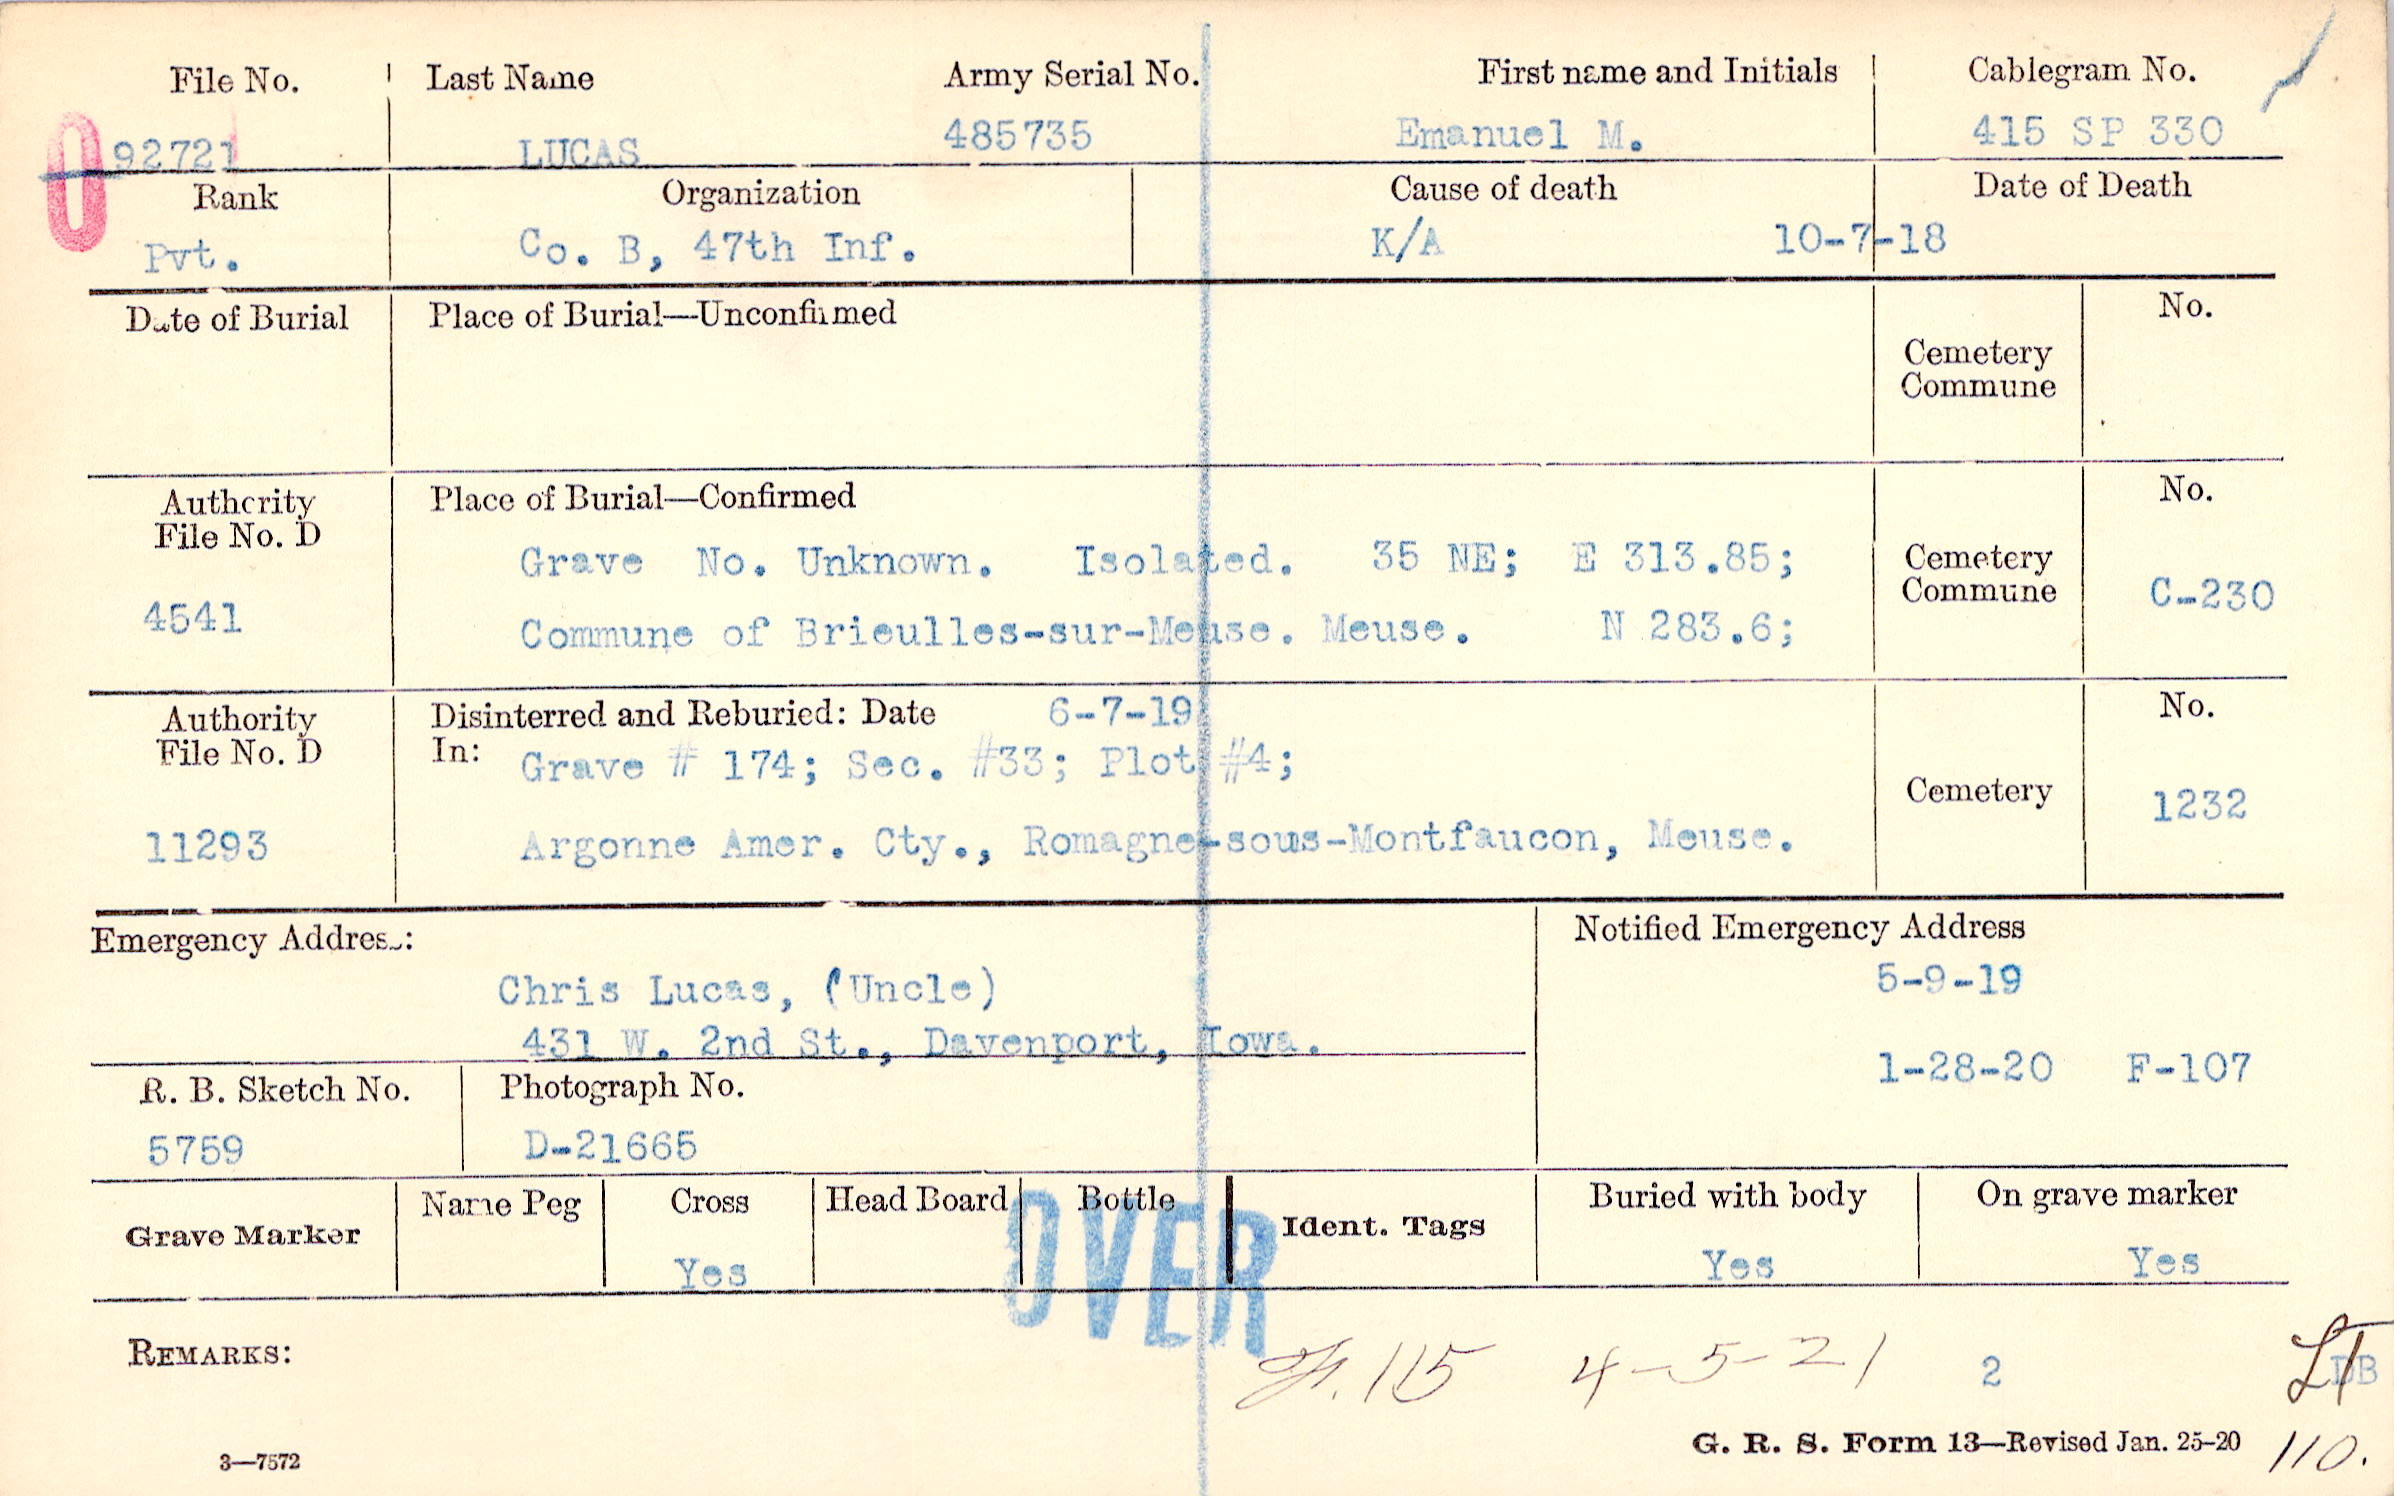 File No. Last Name Army Serial No. First name and Initials Cablegram No.
0 92721 LUCAS 485735 Emanuel M. 415 SP 330
Rank Organization Cause of death Date of Death
Pvt. Co. B, 47th Inf. K/A 10-7-18
Date of Burial Place of Burial—Unconfirmed No.
Cemetery
Commune
Authority Place of Burial—Confirmed No.
File No. D
Grave No. Unknown. Isolated. 35 NE; E 313.85; Cemetery
4541 Commune of Brieulles-sur-Meuse. Meuse. N 283.6; Commune C-230
Authority Disinterred and Reburied: Date 6-7-19 No.
File No. D In: Grave # 174; Sec. #33; Plot #4;
Cemetery 1232
11293 Argonne Amer. Cty., Romagne-sous-Montfaucon, Meuse.
Emergency Address: Notified Emergency Address
Chris Lucas, (Uncle) 5-9-19
431 W. 2nd St., Davenport, Iowa.
1-28-20 F-107
R. B. Sketch No. Photograph No.
5759 D-21665
Grave Marker Name Peg Cross Head Board Bottle Ident. Tags Buried with body On grave marker
Yes Yes Yes
OVER
REMARKS: 115 4-5-21 2 DB
G. R. S. Form 13—Revised Jan. 25-20 110.
3—7572